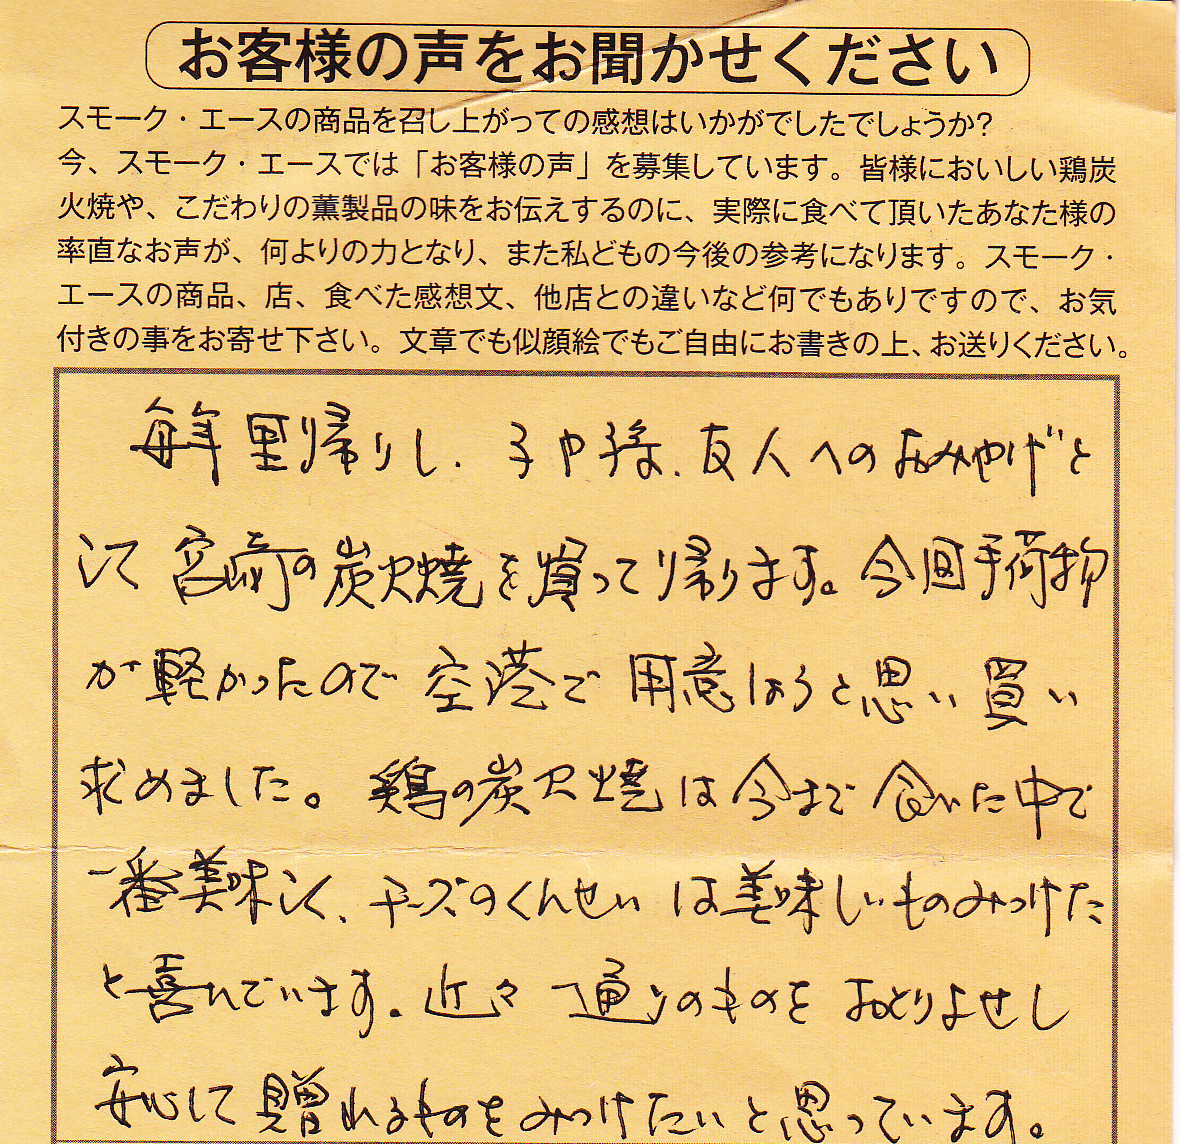 お客様の声をお聞かせください
スモーク・エースの商品を召し上がっての感想はいかがでしたでしょうか?
今、スモーク・エースでは「お客様の声」を募集しています。皆様においしい鶏炭
火焼や、こだわりの薫製品の味をお伝えするのに、実際に食べて頂いたあなた様の
率直なお声が、何よりの力となり、また私どもの今後の参考になります。スモーク・
エースの商品、店、食べた感想文、他店との違いなど何でもありですので、お気
付きの事をお寄せ下さい。文章でも似顔絵でもご自由にお書きの上、お送りください。
毎年里帰りし、子や孫、友人へのおみやげと
して宮崎の炭火焼を買って帰ります。今回手荷物
が軽かったので空港で用意しようと思い買い
求めました。鶏の炭火焼は今まで食べた中で
一番美味しく、チーズのくんせいは美味しいものみつけた
と喜んでいます。近々一通りのものをおとりよせし
安心して贈れるものをみつけたいと思っています。